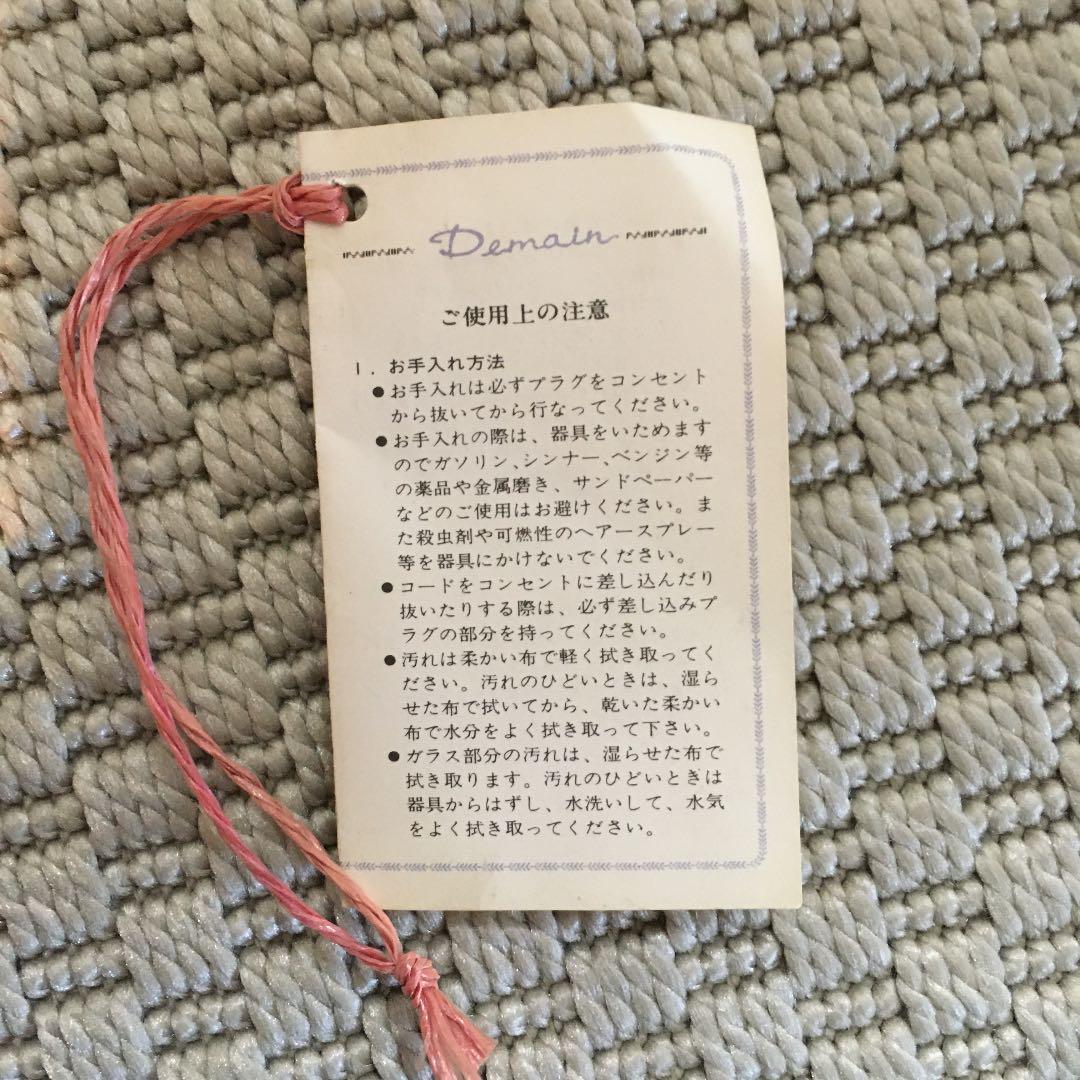 Demain
ご使用上の注意
1. お手入れ方法
●お手入れは必ずプラグをコンセント
から抜いてから行なってください。
●お手入れの際は、器具をいためます
のでガソリン、シンナー、ベンジン等
の薬品や金属磨き、サンドペーパー
などのご使用はお避けください。ま
た殺虫剤や可燃性のヘアースプレー
等を器具にかけないでください。
●コードをコンセントに差し込んだり
抜いたりする際は、必ず差し込みプ
ラグの部分を持ってください。
●汚れは柔かい布で軽く拭き取ってく
ださい。汚れのひどいときは、湿ら
せた布で拭いてから、乾いた柔かい
布で水分をよく拭き取って下さい。
●ガラス部分の汚れは、湿らせた布で
拭き取ります。汚れのひどいときは
器具からはずし、水洗いして、水気
をよく拭き取ってください。